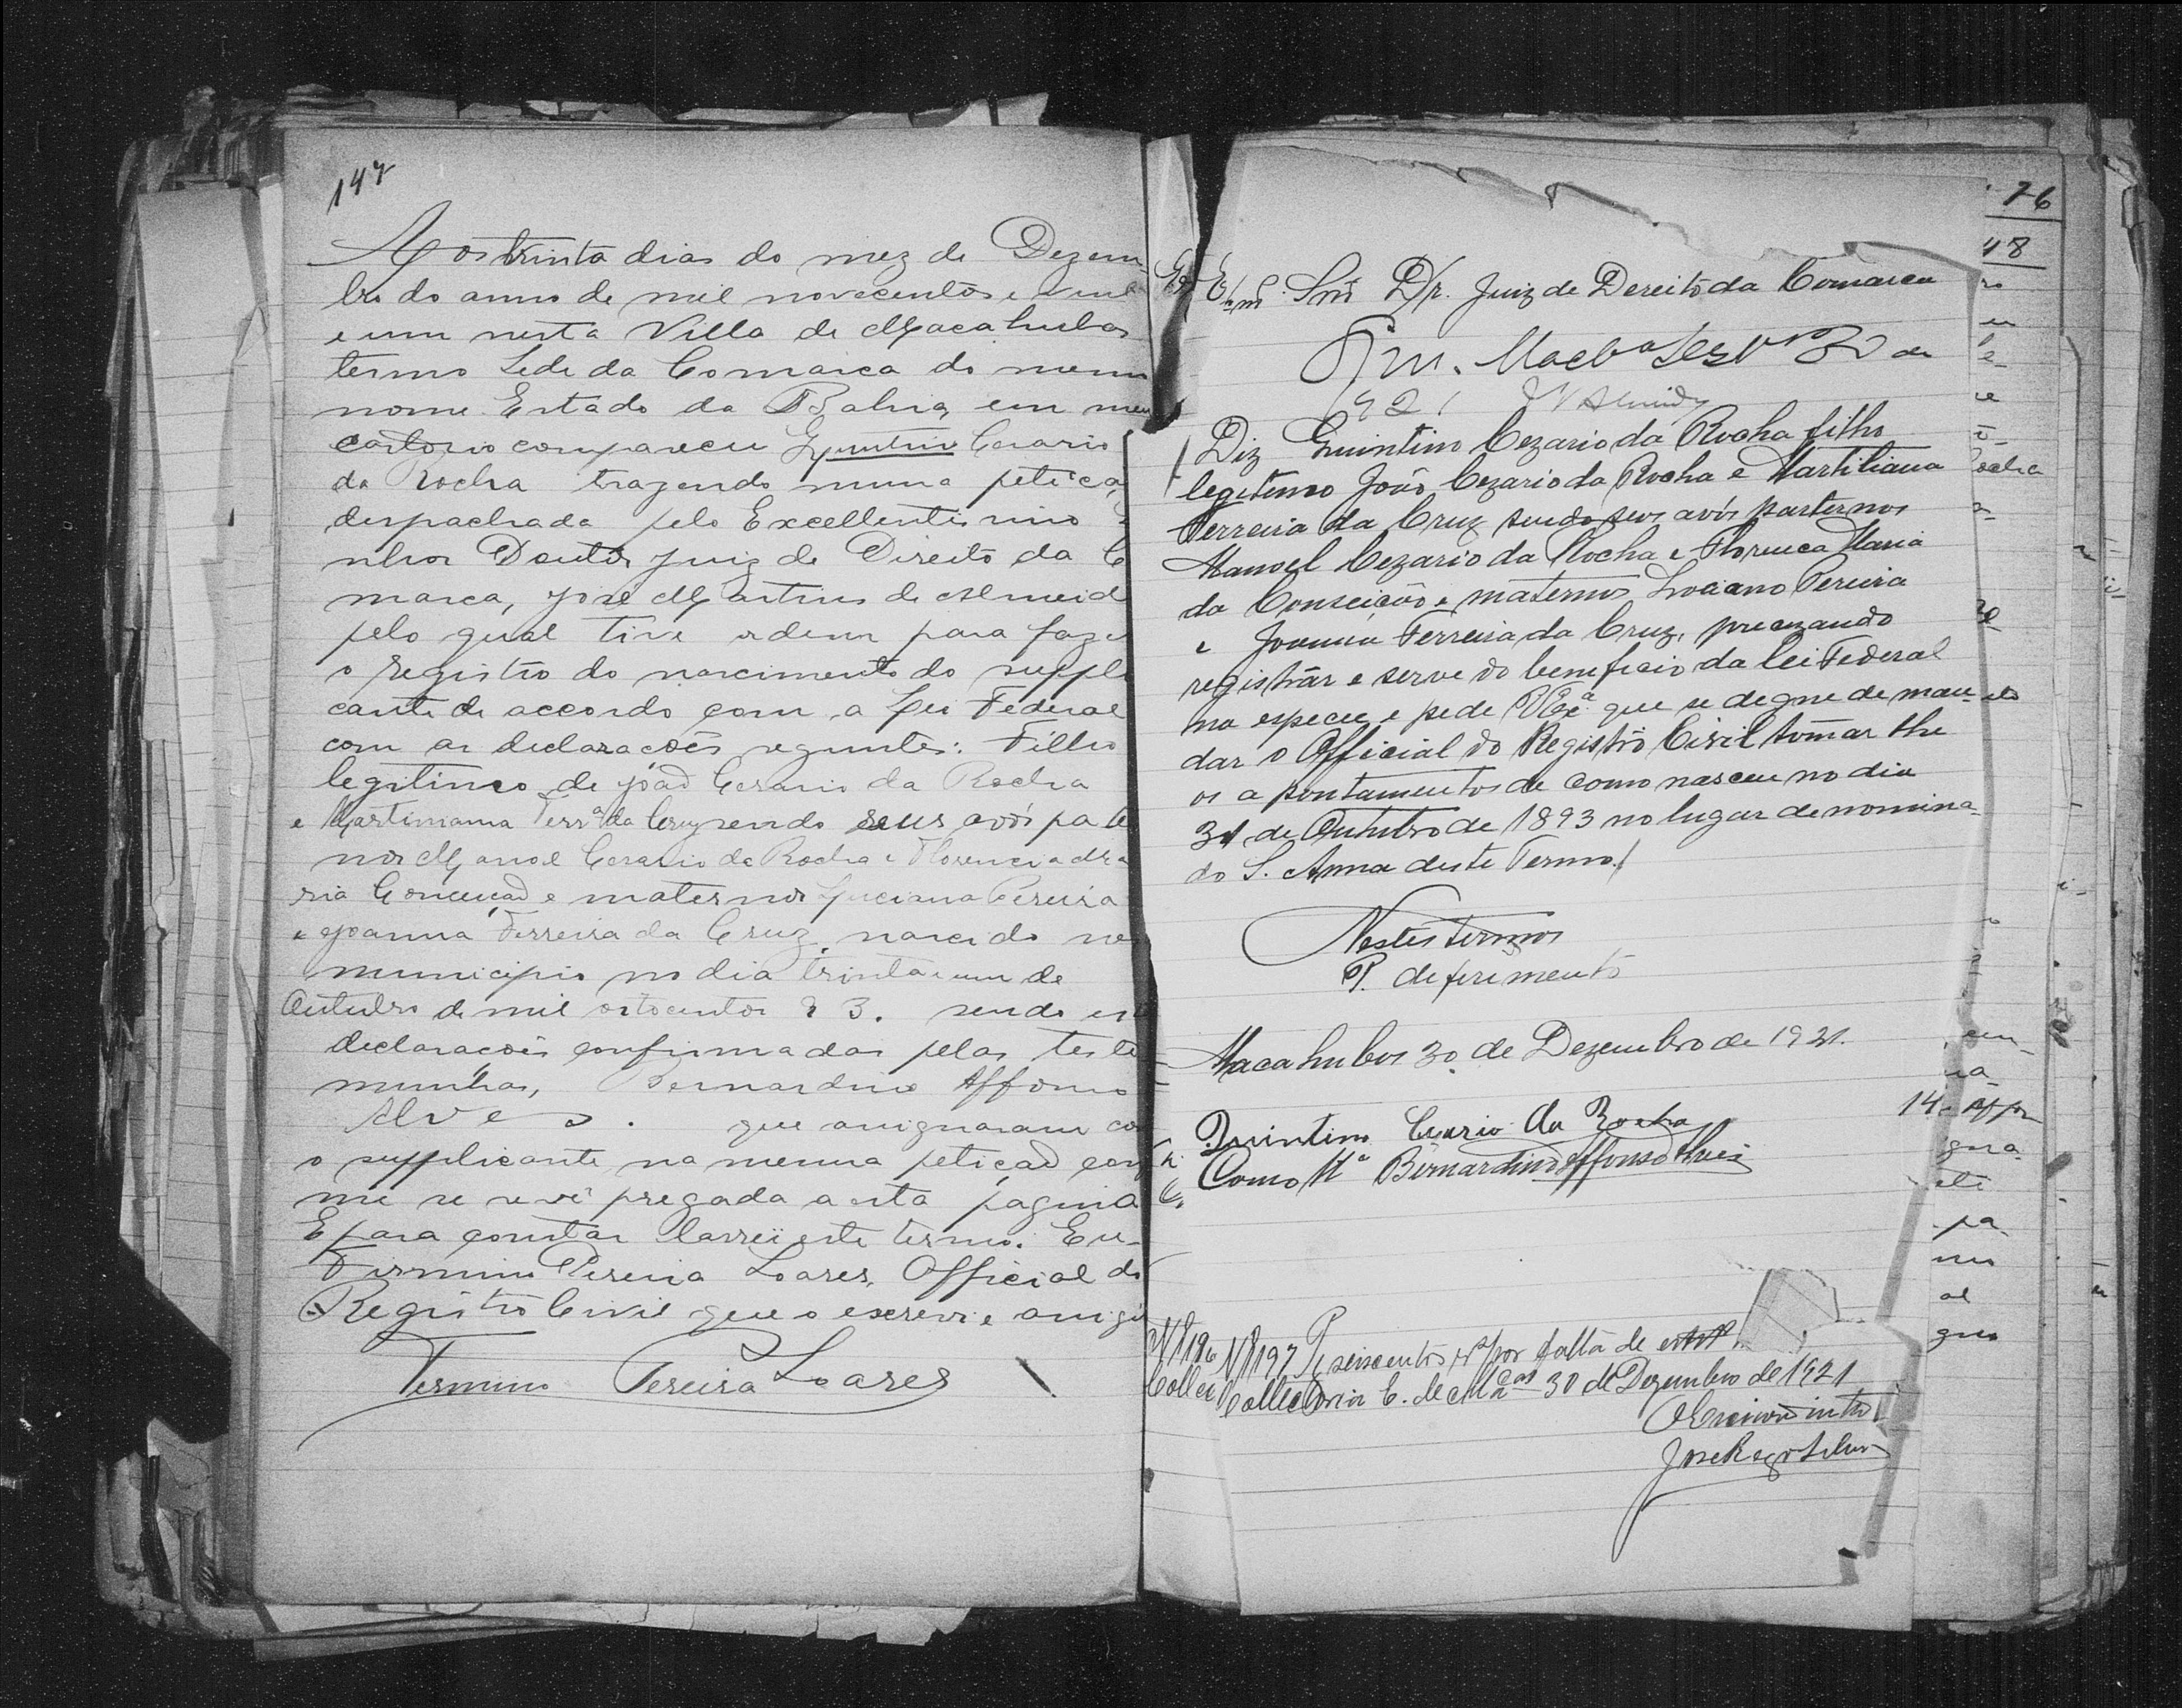 147
Aos trinta dias do mez de Dezem-
bro do anno de mil novecentos e vinte
e um nesta Villa de Macahubas
termo Sede da Comarca do mesmo
nome Estado da Bahia, em meu
cartorio compareceu Quintino Cesario
da Rocha trazendo numa petica
despachada pelo Excellentissimo
nhor Doutor Juiz de Direito da C
marca, José Martins de Almeid
pelo qual tive ordem para faze
o registro do nascimento do suppli
cante de accordo com a Lei Federal
com as declarações seguntes: Filho
legitimo de João Cesario da Rocha
e Martiniana Ferrª da Cruz sendo seus avós pate
nos Manoel Cesario da Rocha e Florencia Ma
ria Conceiçaõ e maternos Luciana Pereira
e Joanna Ferreira da Cruz, nascido ne
municipio no dia trinta e um de
Outubro de mil oitocentos 93. sendo es
declaraçoẽs confirmadas pelas teste
munhas, Bernardino Affonso
Alves. que assignaram co
o supplicante na mesma petiçaõ con
me se ve pregada a esta pagina
E para constar lavrei este termo. Eu
Firmino Pereira Soares, Official do
Registro Civil que o escrevi e assig
Firmino Pereira Soares
76
48
Exmº Snr Dr. Juiz de Dereito da Comarca
Sim. 30 de
1921 Almeida
Diz Quintino Cezario da Rocha filho
legitimo João Cezario da Rocha e Martiliana
Ferreira da Cruz sendo seus avós parternos
Manoel Cezario da Rocha e Florenca Maria
da Conseição e maternos Luciano Pereira
e Joanna Ferreira da Cruz, precizando
registrar e serve do beneficio da lei Federal
na especie e pede VExª que se degne de man-
dar o Official do Registro Civil tomar lhe
os apontamentos de como nasceu no dia
31 de Outubro de 1893 no lugar denomina-
do S. Anna deste Termo
Nestes termos
P. deferimento
Macahubas 30 de Dezembro de 1921.
Quintino Cesario da Rocha
Como tª Bernardino Affonso Alves
Nº 196 Nº 197 seiscentos rs por falta de
Collec Collectoria E. de Mªcas 30 de Dezembro de 1921
O Escrivão intº
José Rego